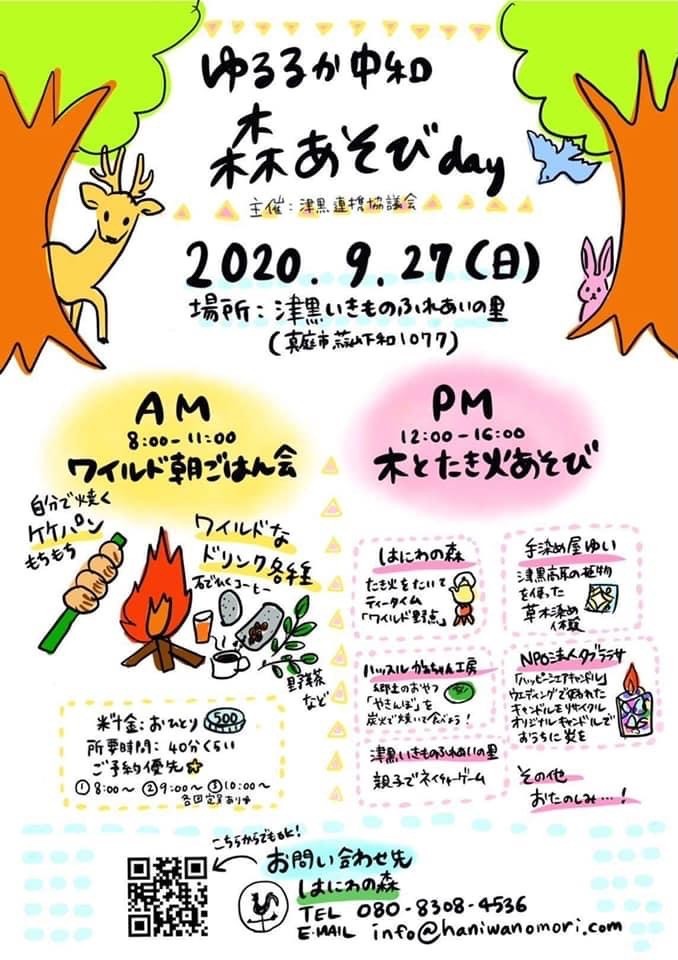 ゆるるか中和
森あそびday
主催：津黒連携協議会
2020.9.27(日)
場所：津黒いきものふれあいの里
(真庭市蒜山下和1077)
AM
8:00-11:00
ワイルド朝ごはん会
自分で焼く
ケケパン
もちもち
ワイルドな
ドリンク各種
石びきコーヒー
野草茶
など
料金：おひとり 500
所要時間：40分くらい
ご予約優先
①8:00～ ②9:00～ ③10:00～
各回定員あり
PM
12:00-16:00
木とたき火あそび
はにわの森
たき火をたいて
ティータイム
「ワイルド野点」
手染め屋ゆい
津黒高原の植物
を使った
草木染め
体験
ハッスルかあちゃん工房
郷土のおやつ
「やきんぼ」を
炭火で焼いて食べよう！
NPO法人タブラササ
「ハッピーシェアキャンドル」
ウエディングで使われた
キャンドルをリサイクル
オリジナルキャンドルで
おうちに炎を
津黒いきものふれあいの里
親子でネイチャーゲーム
その他
おたのしみ…！
こちらからでもOK！
お問い合わせ先
はにわの森
TEL 080-8308-4536
E-MAIL info@haniwanomori.com